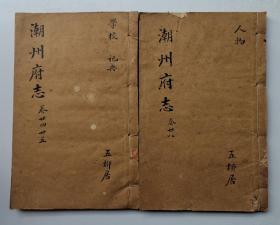 學校 祀典
五柳居
潮州府志
卷廿四廿五
人物
五柳居
潮州府志
卷廿八